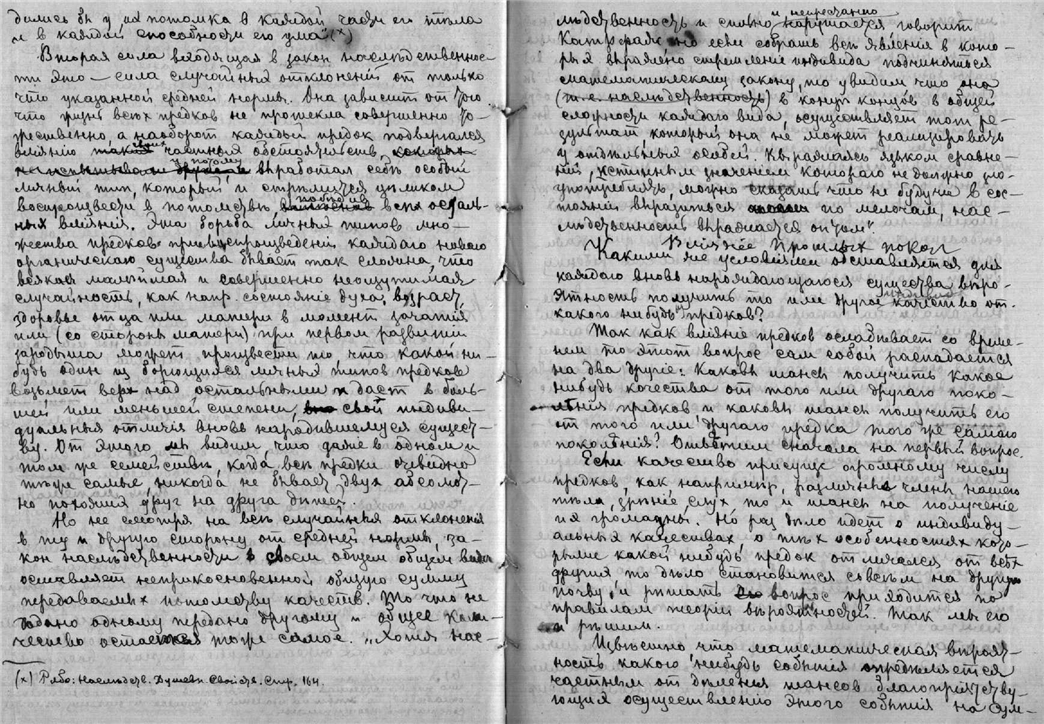 дились бы у их потомка в каждой части его тѣла
и в каждой способности его ума (х)
Вторая сила входящая в закон наслѣдственнос-
ти это — сила случайных отклонений от только
что указанной средней нормы. Она зависит от того
что жизнь всѣх предков не протекла совершенно то-
жественно, а наоборот каждый предок подвергался
влиянию частных обстоятельств,
и потому выработал себѣ особый
личный тип, который и стремится цѣликом
воспроизвести в потомствѣ, всѣх осталь-
ных влияния. Эта борьба личных типов мно-
жества предков при воспроизведении каждаго новаго
органическаго существа бывает так сложна, что
всякая малѣйшая и совершенно неощутимая
случайность, как напр. состояние духа, возраст,
здоровье отца или матери в момент зачатия
или (со стороны матери) при первом развитии
зародыша может произвести то что какой ни-
будь один из борющихся личных типов предков
возьмет верх над остальными и даст в боль-
шей или меньшей степени, свой индиви-
дуальныя отличия вновь народившемуся сущест-
ву. От этого мы видим что даже в одном и
том же семействѣ, когда всѣ предки очевидно
тѣже самые, никогда не бывает двух абсолют-
но похожих друг на друга дѣтей.
Но не смотря на всѣ случайныя отклонения
в ту и другую сторону от средней нормы, за-
кон наслѣдственности в своем общем видѣ
оставляет неприкосновенной общую сумму
передаваемых потомству качеств. То что не
дано одному передано другому и общее коли-
чество остается тоже самое. „Хотя нас-
(х) Рибо: Наслѣдств. Душевн. Свойств. Стр. 164.
лѣдственность и сильно и непрестанно нарушается говорит
Катрфаж, но если собрать всѣ явления в кото-
рых выражено стремление индивида подчиниться
математическому закону, то увидим что она
(т.е. наслѣдственность) в концѣ концов в общей
сложности каждаго вида, осуществляет тот ре-
зультат который она не может реализировать
у отдѣльных особей. Выражаясь языком сравне-
ний, истинным значением котораго не должно зло-
употреблять, можно сказать что не будучи в сос-
тоянии выразиться по мелочам, нас-
лѣдственность выражается оптом".
Влияние прошлых покол.
Какими же условиями обставляется для
каждаго вновь нарождающагося существа вѣро-
ятность получить то или другое качество от
какого нибудь предков?
Так как влияние предков ослабѣвает со време-
нем то этот вопрос сам собой распадается
на два другие: Каковы шансы получить какое
нибудь качества от того или другаго поко-
лѣния предков и каковы шансы получить его
от того или другаго предка того же самаго
поколѣния? Отвѣтим сначала на первый вопрос.
Если качество присуще огромному числу
предков, как например, различные члены нашего
тѣла, зрѣние слух то и шансы на получение
их громадны. Но раз дѣло идет о индивиду-
альных качествах о тѣх особенностях кото-
рыми какой нибудь предок отличался от всѣх
других то дѣло становится совсѣм на другую
почву, и рѣшать вопрос приходится по
правилам теории вѣроятностей. Так мы его
и рѣшим.
Извѣстно что математическая вѣроят-
ность какого нибудь события опредѣляется
частным от дѣления шансов благоприятству-
ющих осуществлению этого события на сум-